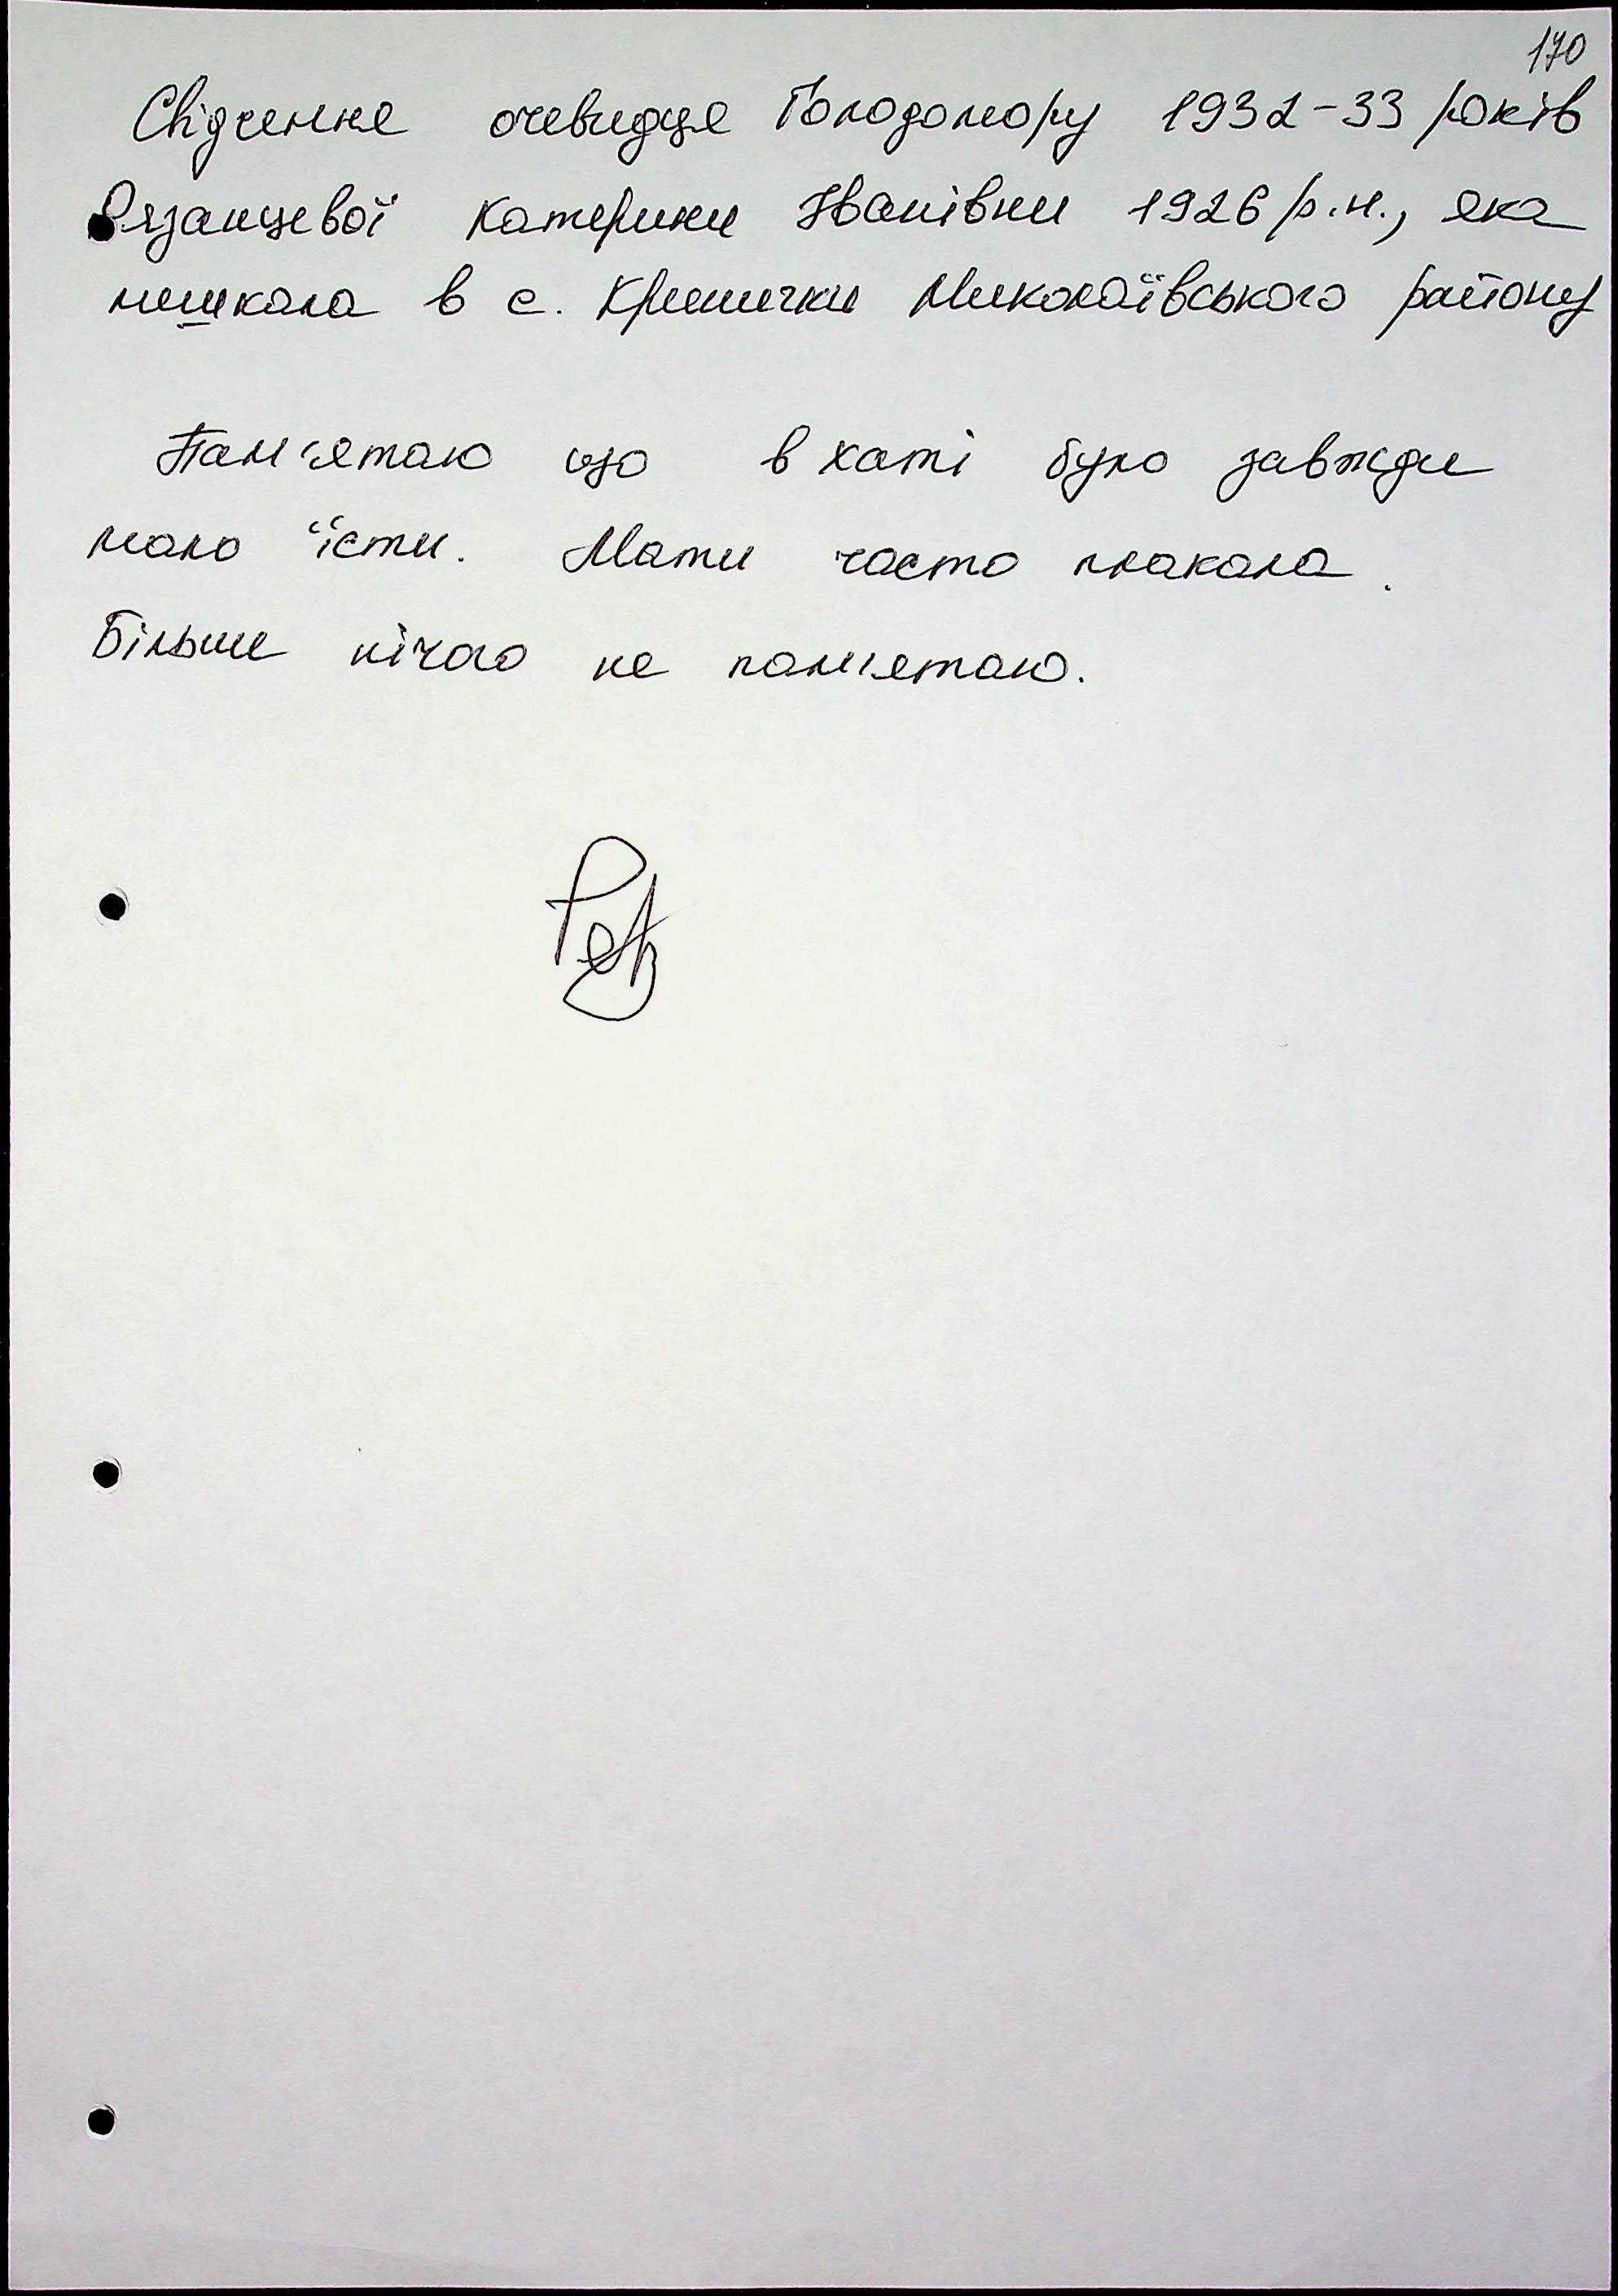 170
Свідчення очевидця Голодомору 1932-33 років
Рязанцевої Катерини Іванівни 1926 р.н., яка
мешкала в с. Кринички Миколаївського району
Пам'ятаю що в хаті було завжди
мало їсти. Мати часто плакала.
Більше нічого не пам'ятаю.